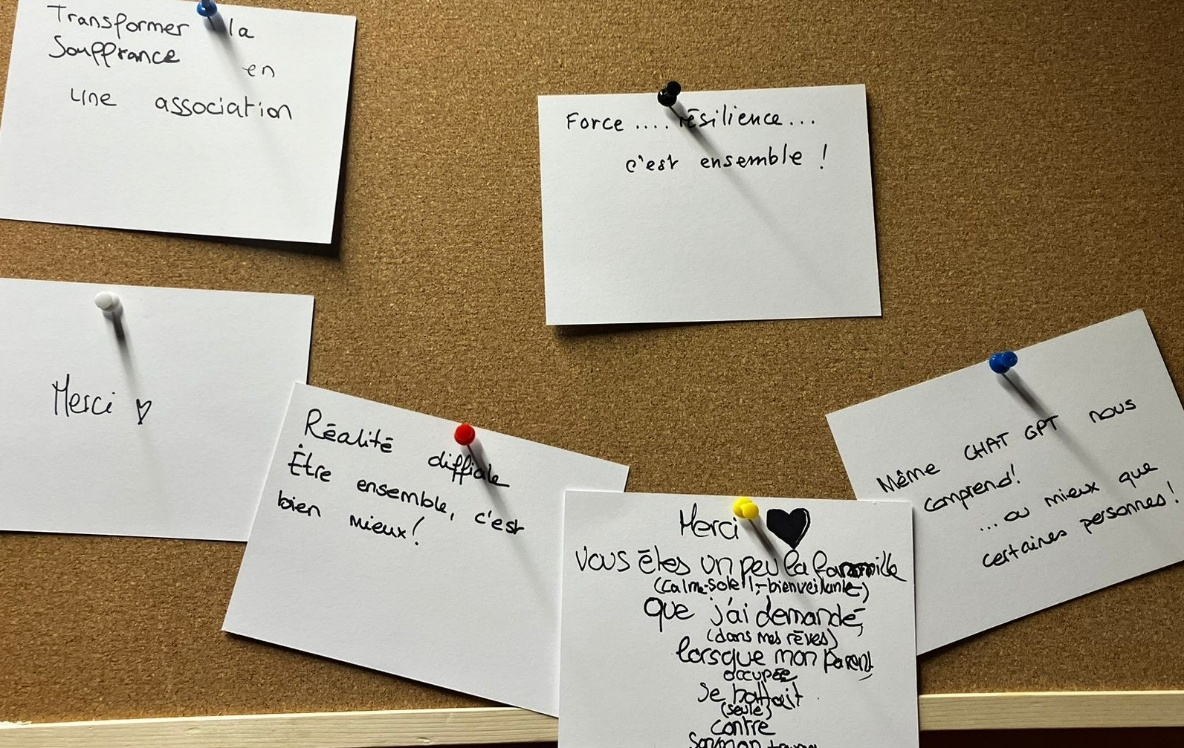 Transformer la
Souffrance en
une association
Force .... résilience...
c'est ensemble !
Merci ♡
Réalité difficile
Être ensemble, c'est
bien mieux!
Même CHAT GPT nous
comprend!
... ou mieux que
certaines personnes!
Merci ♥
Vous êtes un peu la famille
(calme-soleil-bienveillante)
que j'ai demandé,
(dans mes rêves)
lorsque mon parent
occupée
se battait
(seule)
contre